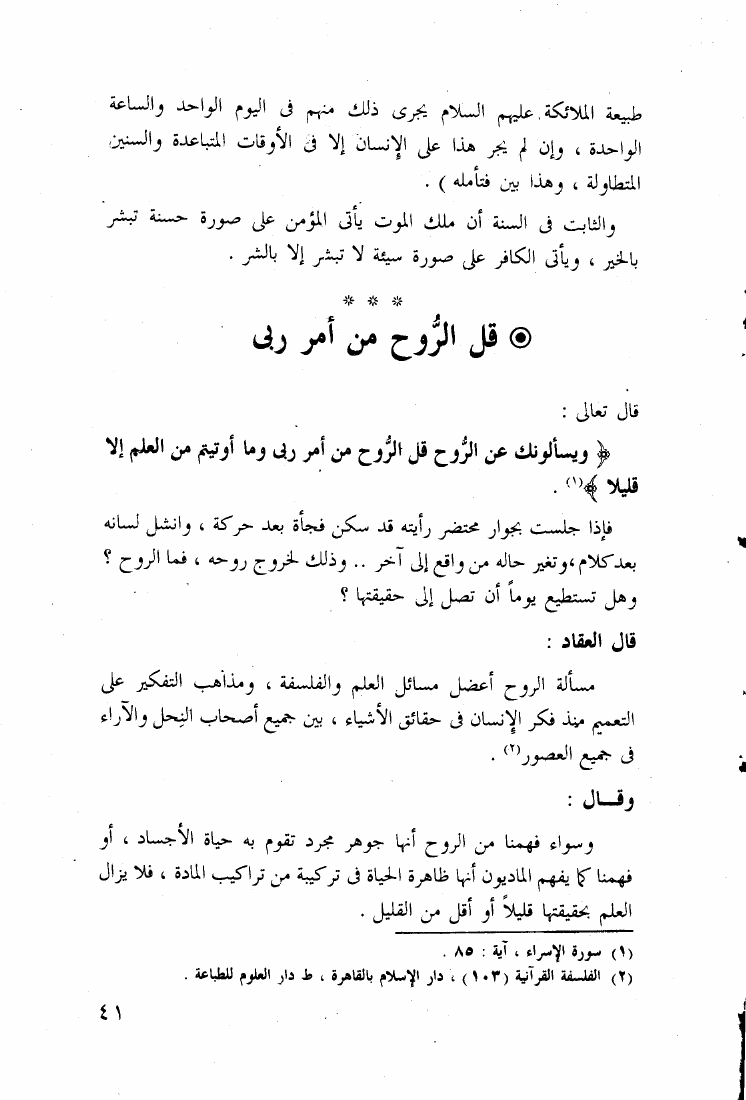 طبيعة الملائكة عليهم السلام يجرى ذلك منهم فى اليوم الواحد والساعة
الواحدة ، وإن لم يجر هذا على الإنسان إلا فى الأوقات المتباعدة والسنين
المتطاولة ، وهذا بين فتأمله ) .
والثابت فى السنة أن ملك الموت يأتى المؤمن على صورة حسنة تبشر
بالخير ، ويأتى الكافر على صورة سيئة لا تبشر إلا بالشر .
* * *
◉ قل الرُّوح من أمر ربى
قال تعالى :
﴿ ويسألونك عن الرُّوح قل الرُّوح من أمر ربى وما أوتيتم من العلم إلا
قليلا ﴾(١) .
فإذا جلست بجوار محتضر رأيته قد سكن فجأة بعد حركة ، وانشل لسانه
بعد كلام ، وتغير حاله من واقع إلى آخر .. وذلك لخروج روحه ، فما الروح ؟
وهل تستطيع يوماً أن تصل إلى حقيقتها ؟
قال العقاد :
مسألة الروح أعضل مسائل العلم والفلسفة ، ومذاهب التفكير على
التعميم منذ فكر الإنسان فى حقائق الأشياء ، بين جميع أصحاب النِحل والآراء
فى جميع العصور(٢) .
وقـــال :
وسواء فهمنا من الروح أنها جوهر مجرد تقوم به حياة الأجساد ، أو
فهمنا كما يفهم الماديون أنها ظاهرة الحياة فى تركيبة من تراكيب المادة ، فلا يزال
العلم بحقيقتها قليلاً أو أقل من القليل .
(١) سورة الإسراء ، آية : ٨٥ .
(٢) الفلسفة القرآنية (١٠٣) ، دار الإسلام بالقاهرة ، ط دار العلوم للطباعة .
٤١